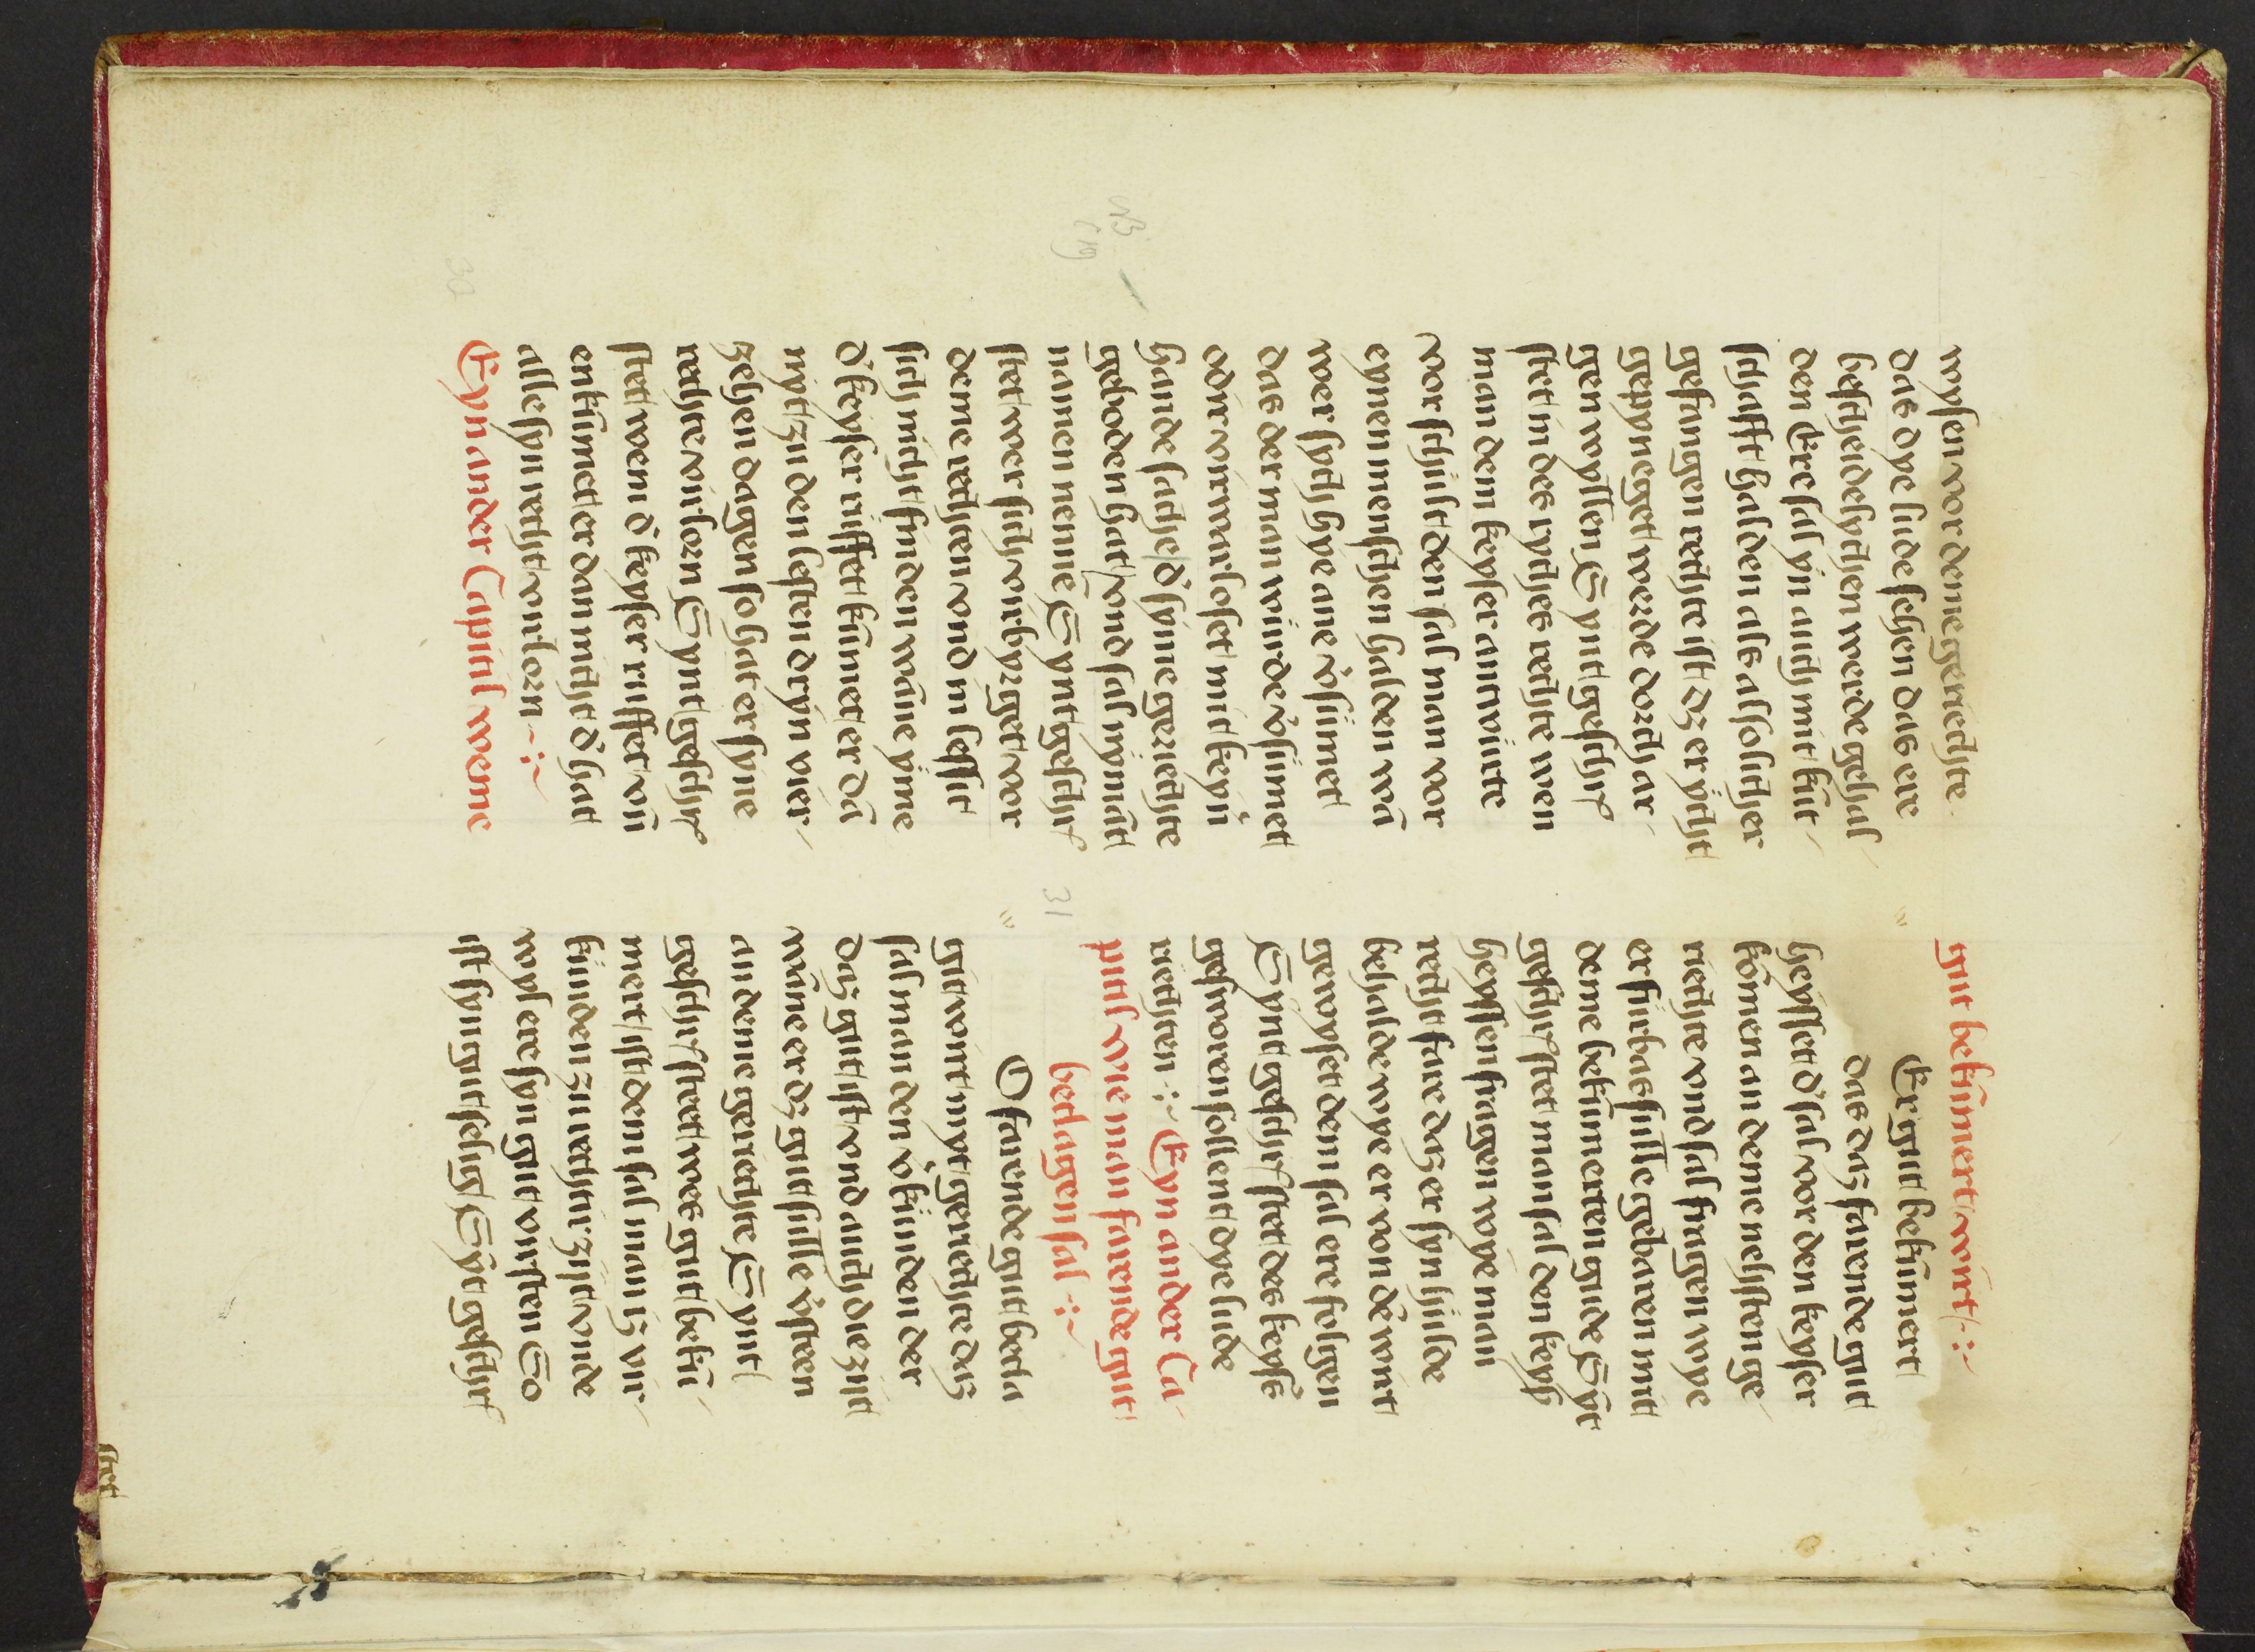 wysen vor deme gerechte
das dye lude sehen das ere
bescheidelychen werde gehal
den Ere sal yn auch mit kūt
schafft halden als also licher
gefangen rechte ist dz er ycht
gepyneget werde dorch ar
gen wyllen Synt geschrͤ
stet in des ryches rechte wen
man dem keyser antwurte
vor schult den sal man vor
eynen menschen halden wā
wer sych hye ane v̇sümet
das der man wurde v̇sümet
odir vorwarloset mit keyn
hande sache d̓ sinne gerichte
geboden hat vnd sal nymāt
namen nenne Synt geschrͤ
stet wer sich vorbyrget vor
deme rechten vnd in lesst
sich nicht finden wāne yme
d̓ keyser rüffet kümet er dā
nyt zu den lesten dryn vier
zehen dagen so hat er syne
rechte virlorn Synt geschrͤ
stet wen d̓ keyser ruffet vn̄
en kümet er dan nicht d̓ hatt
alle syn recht vorlorn
Eyn ander Capitul weme
gut bekūmert wirt
Er gut bekūmert
das daz farende gut
heysset d̓ sal vor den keyser
kōmen an deme nehsten ge
richte vnd sal fragen wye
er furbas sulle gebaren mit
deme bekūmerten gude Syt
geschrͤ stet man sal den keyß
heyssen fragen wye man
recht fare daz er syn schulde
behalde wye er von dē wirt
gewyset dem sal ere folgen
Synt geschrͤ stet des keyßs
gesworen sollent dye lude
richten Eyn ander Ca
pitul wie man farende gut
bedagen sal
O farende gut beda
git wirt myt gerechte das
sal man den v̇künden der
daz gut ist vnd auch die zijt
wāne er dz gut sulle v̇steen
an deme gerichte Synt
geschrͤ stett wes gut bekū
mert ist dem sal man iz vir
künden zu rechtir zijt vnde
wyl ere syn gut virsten So
ist syn gut ledig Syt geschrͤ
stett
NB
30
31